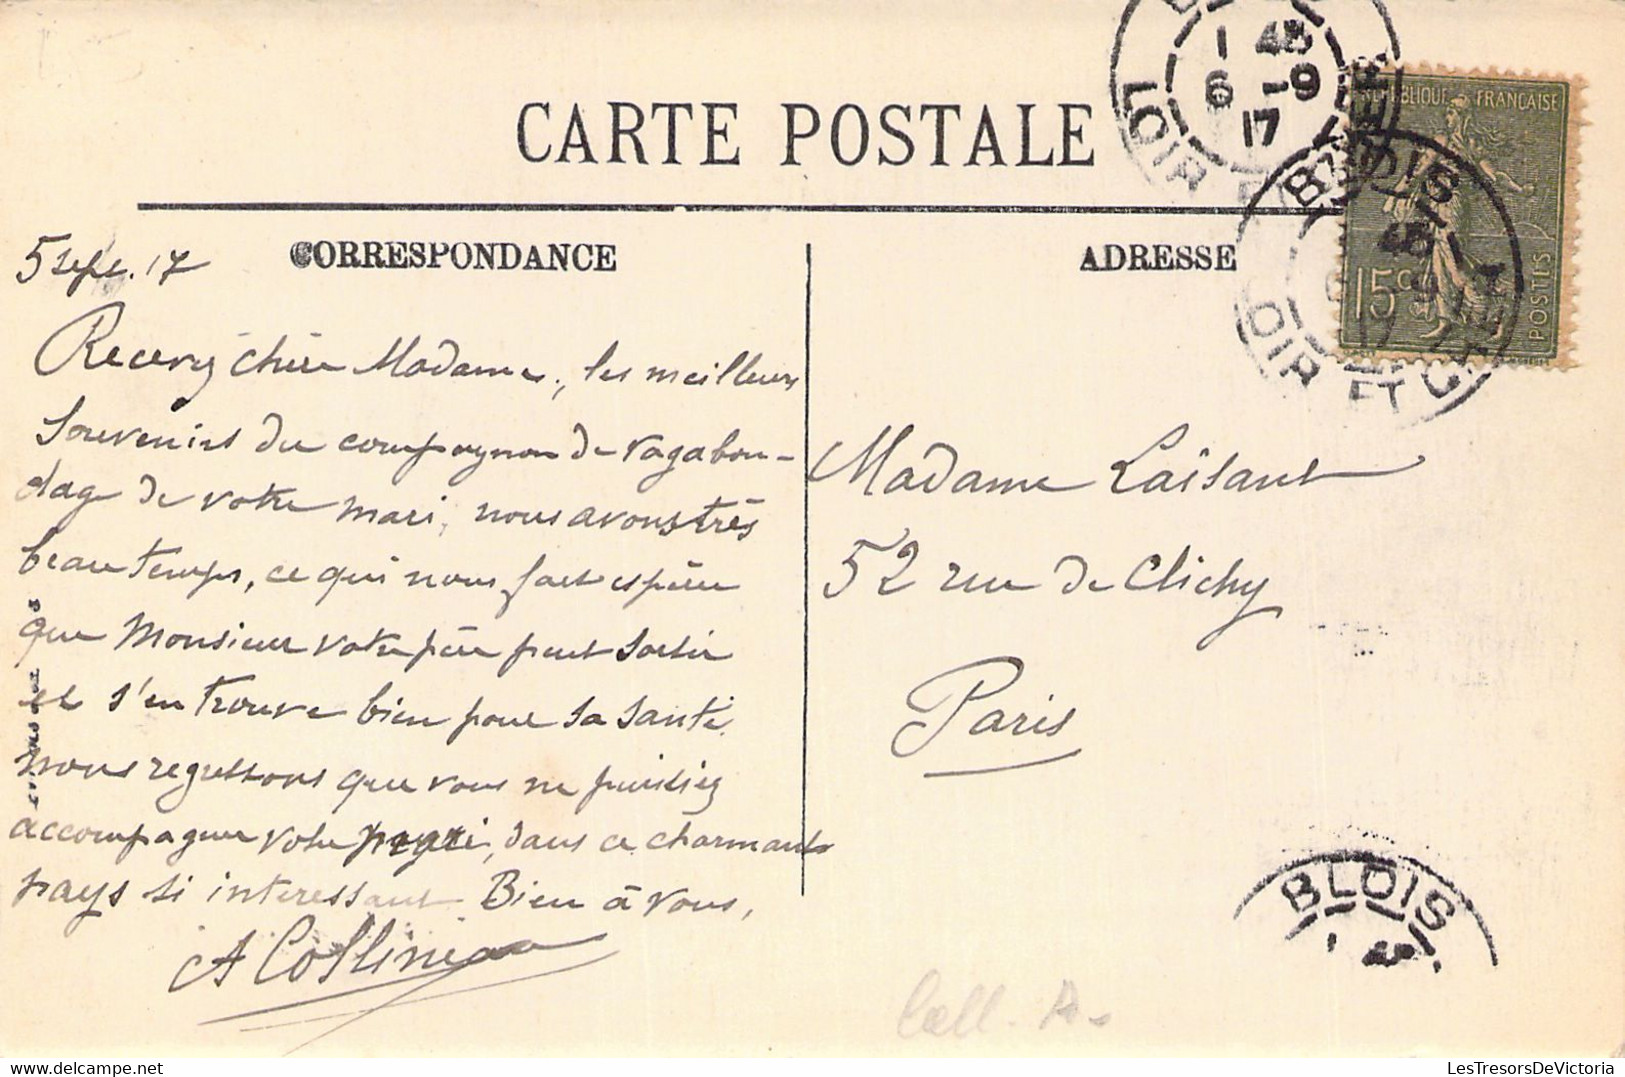 CARTE POSTALE
CORRESPONDANCE
ADRESSE
5 sept. 17
Recevez chère Madame, les meilleurs
souvenirs du compagnon de vagabon-
dage de votre mari, nous avons très
beau temps, ce qui nous fait espérer
que Monsieur votre père peut sortir
et s'en trouve bien pour sa santé.
nous regrettons que vous ne puissiez
accompagner votre mari, dans ce charmant
pays si interessant Bien à vous,
A Collineau
Madame Laisant
52 rue de Clichy
Paris
REPUBLIQUE FRANÇAISE
15c
POSTES
1 45
6 -9
17
LOIR
BLOIS
45
-9
17
LOIR ET CHER
BLOIS
Coll. A.
LesTresorsDeVictoria